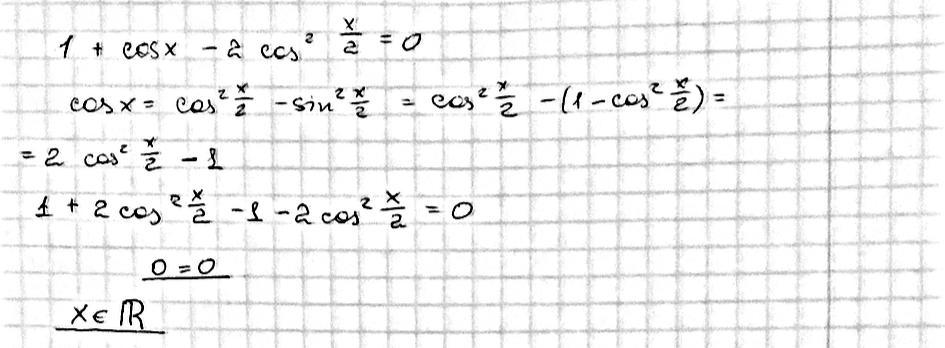 1 + cos x - 2 cos² x/2 = 0
cos x = cos² x/2 - sin² x/2 = cos² x/2 - (1 - cos² x/2) =
= 2 cos² x/2 - 1
1 + 2 cos² x/2 - 1 - 2 cos² x/2 = 0
0 = 0
x ∈ ℝ